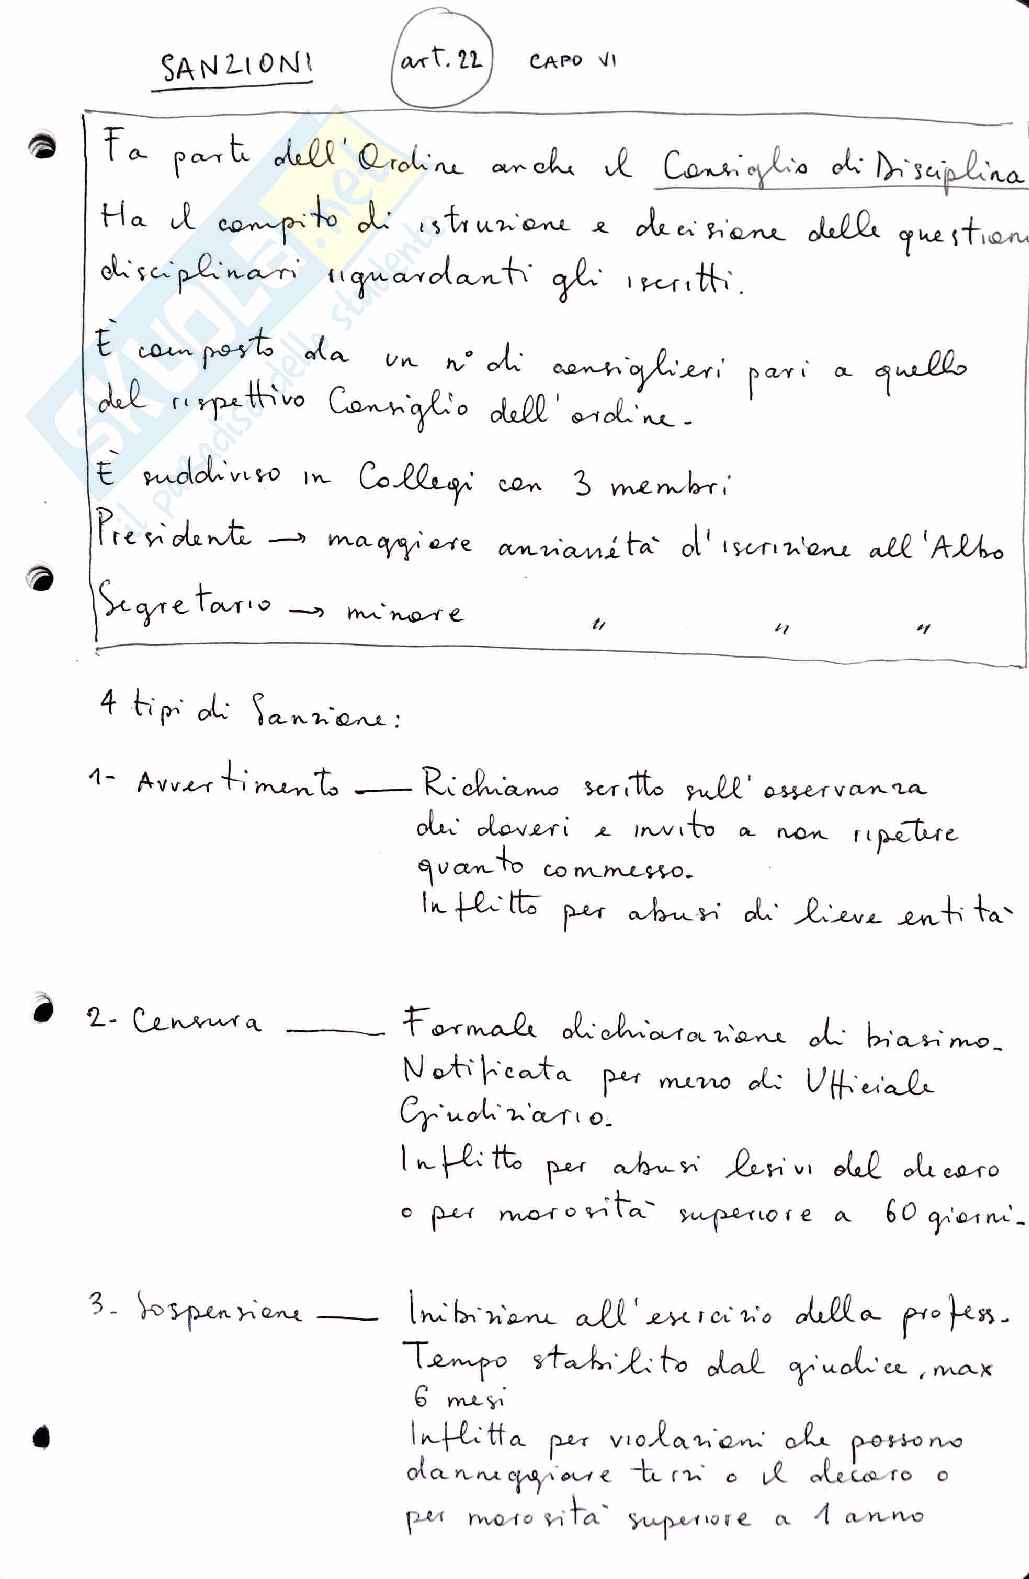 SANZIONI art. 22 CAPO VI
Fa parte dell'Ordine anche il Consiglio di Disciplina
Ha il compito di istruzione e decisione delle question
disciplinari riguardanti gli iscritti.
È composto da un n° di consiglieri pari a quello
del rispettivo Consiglio dell'ordine.
È suddiviso in Collegi con 3 membri
Presidente → maggiore anzianità d'iscrizione all'Albo
Segretario → minore " " "
4 tipi di Sanzione:
1- Avvertimento — Richiamo scritto sull'osservanza
dei doveri e invito a non ripetere
quanto commesso.
Inflitto per abusi di lieve entità
2- Censura — Formale dichiarazione di biasimo.
Notificata per mezzo di Ufficiale
Giudiziario.
Inflitto per abusi lesivi del decoro
o per morosità superiore a 60 giorni.
3- Sospensione — Inibizione all'esercizio della profess.
Tempo stabilito dal giudice, max
6 mesi
Inflitta per violazioni che possono
danneggiare terzi o il decoro o
per morosità superiore a 1 anno
SKUOLA.net
il paradiso dello studente